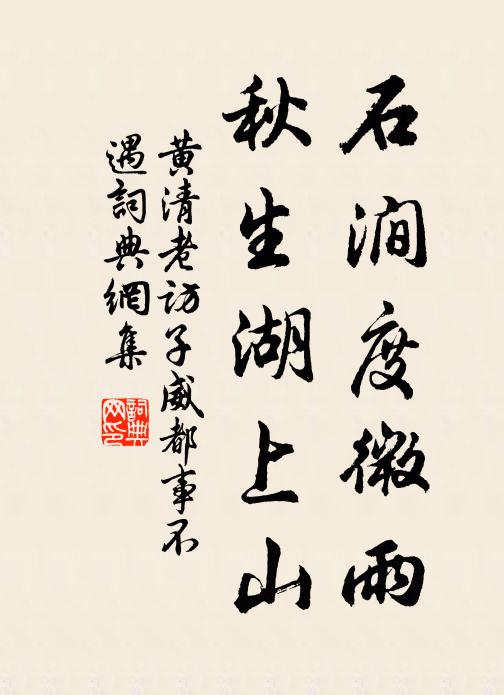 石澗度微雨
秋生湖上山
黄清老訪子威都事不
遇詞典網集
詞典
网印